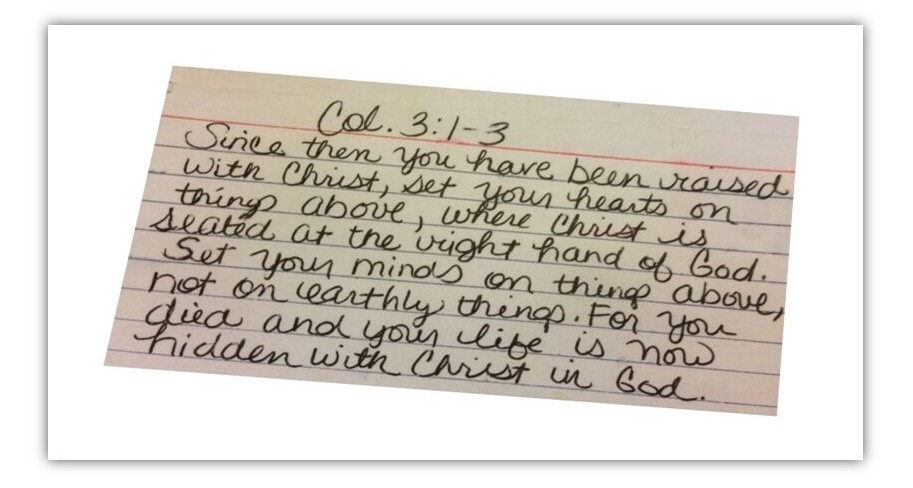 Col. 3:1-3
Since then you have been raised
with Christ, set your hearts on
things above, where Christ is
seated at the right hand of God.
Set your minds on things above,
not on earthly things. For you
died and your life is now
hidden with Christ in God.